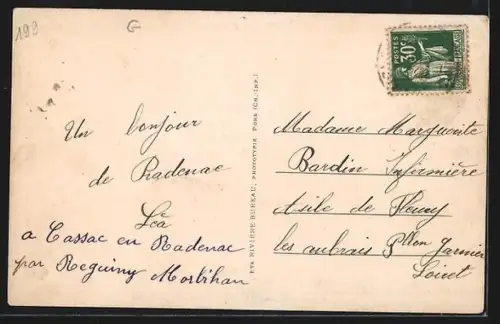 193
G
POSTES
30c
Un bonjour
de Radenac
Léa
a Cassac en Radenac
par Reguiny Morbihan
ETS RIVIÈRE-BUREAU, PHOTOTYPIE PONS (CH.-INF.)
Madame Marguerite
Bardin Infirmière
Asile de Fleury
les aubrais Pllon Garnier
Loiret